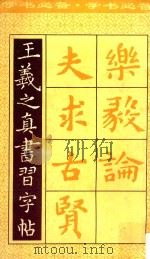 樂毅論
夫求古賢
王羲之真書習字帖
mtoou.info